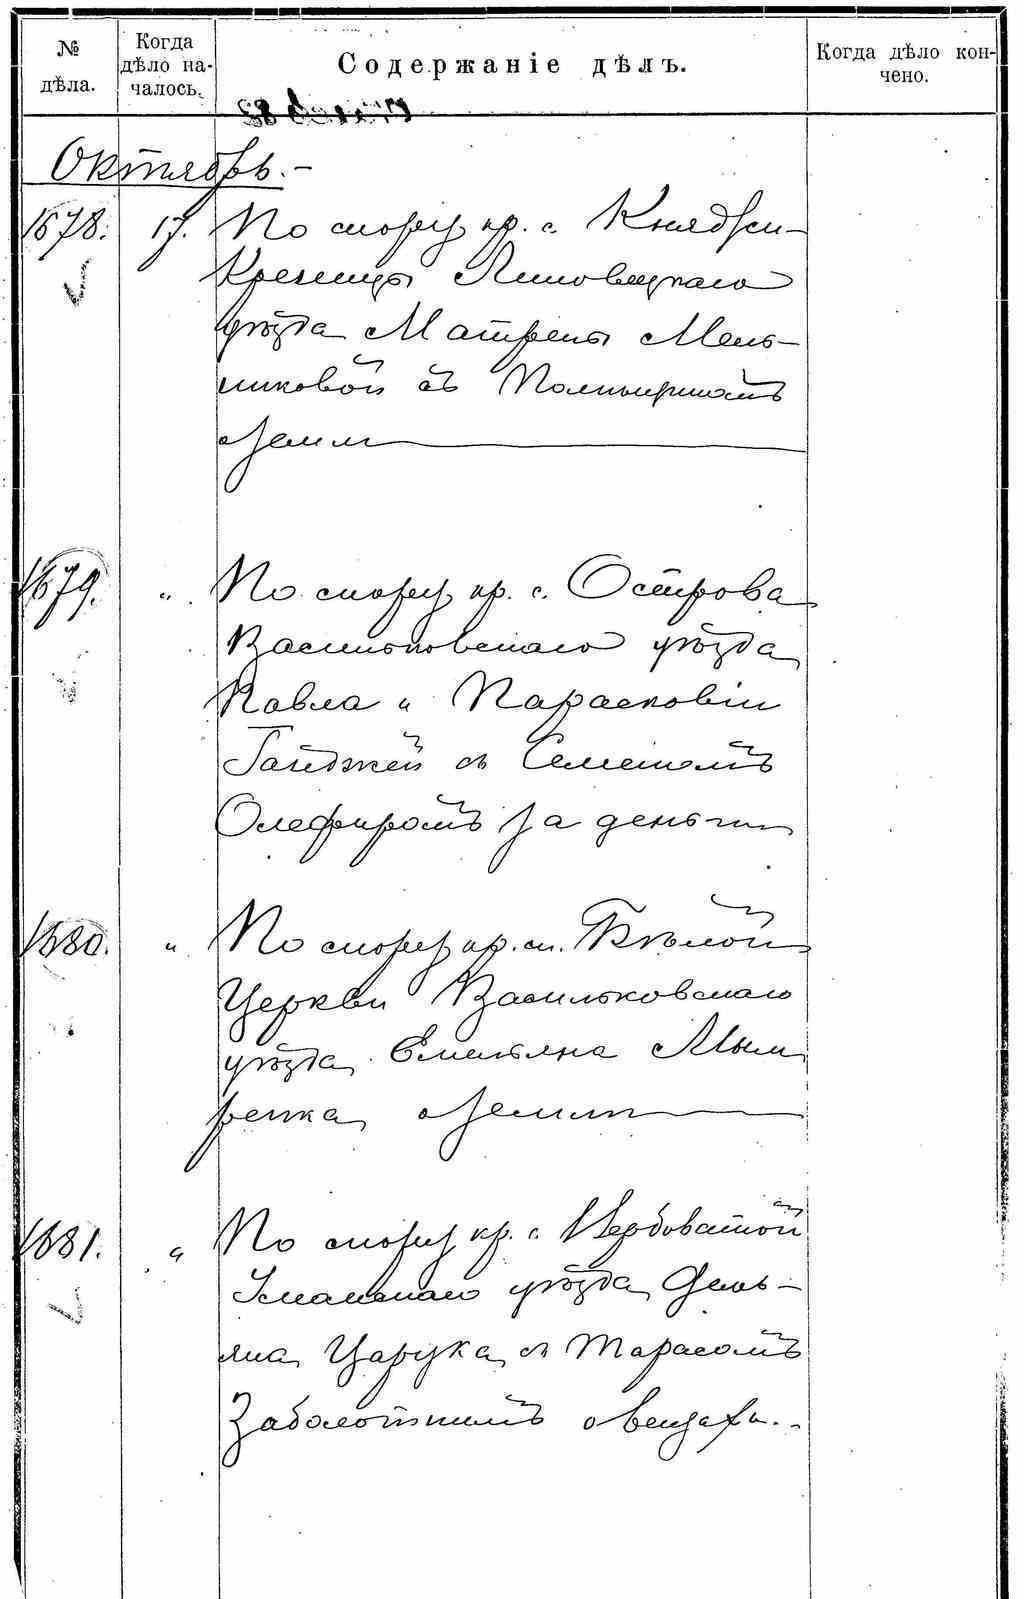 № дѣла.
Когда дѣло на-
чалось.
Содержаніе дѣлъ.
Когда дѣло кон-
чено.
Октябрь.-
1678. 17. По спору кр. с. Княжеи-
Креницы Липовецкаго
уѣзда Матрены Мель-
никовой съ
о землѣ
1679. " По спору кр. с. Острова
Васильковскаго уѣзда
Павла и Парасковіи
Гайджей съ Семеномъ
Олефиромъ за деньги
1680. " По спору кр. м. Бѣлой
Церкви Васильковскаго
уѣзда Емельяна Мым
ренка о землѣ
1681. " По спору кр. с. Вербоватой
Уманскаго уѣзда Демь-
яна Царука съ Тарасомъ
Заболотнимъ о вещахъ.-